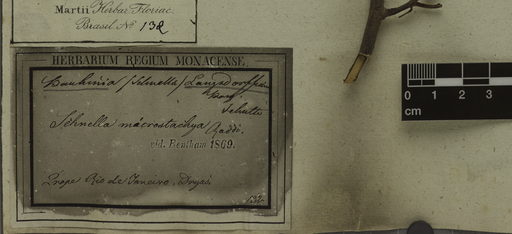 Martii Herbar. Florae
Brasil. No 132
HERBARIUM REGIUM MONACENSE.
Bauhinia (Schnella) Langsdorffiana
Bong
Schnella macrostachya Raddi.
vid. Bentham 1869.
Prope Rio de Janeiro.
132.
0 1 2 3
cm